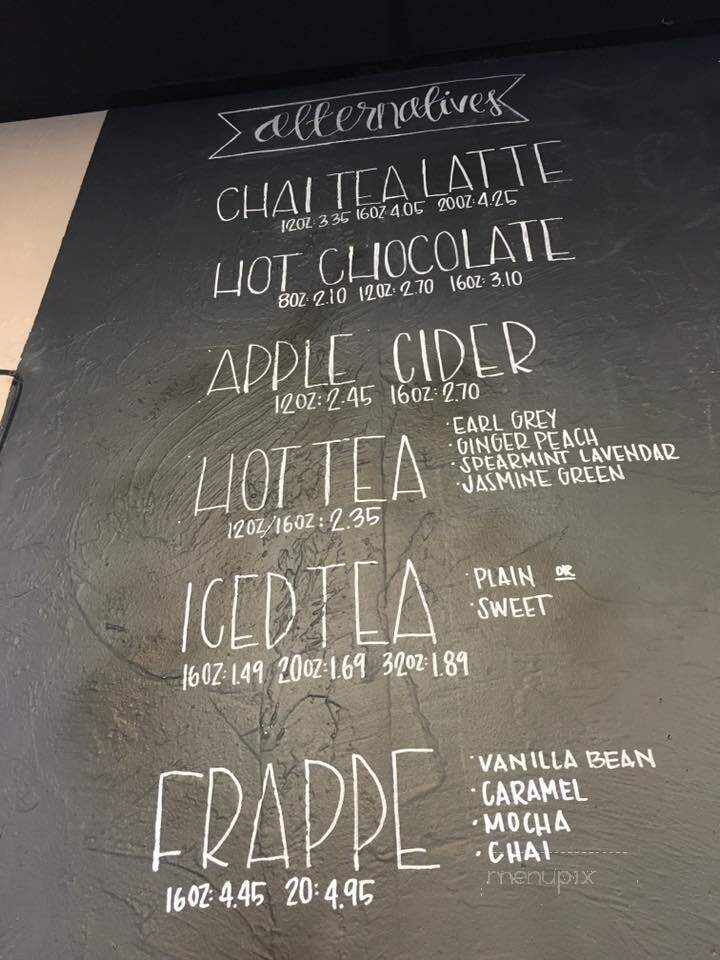 alternatives
CHAI TEA LATTE
12OZ: 3.35 16OZ 4.05 20OZ: 4.25
HOT CHOCOLATE
8OZ: 2.10 12OZ: 2.70 16OZ: 3.10
APPLE CIDER
12OZ: 2.45 16OZ: 2.70
HOT TEA
12OZ/16OZ: 2.35
· EARL GREY
· GINGER PEACH
· SPEARMINT LAVENDAR
· JASMINE GREEN
ICED TEA
16OZ: 1.49 20OZ: 1.69 32OZ: 1.89
· PLAIN OR
· SWEET
FRAPPE
16OZ: 4.45 20: 4.95
· VANILLA BEAN
· CARAMEL
· MOCHA
· CHAI
menupix